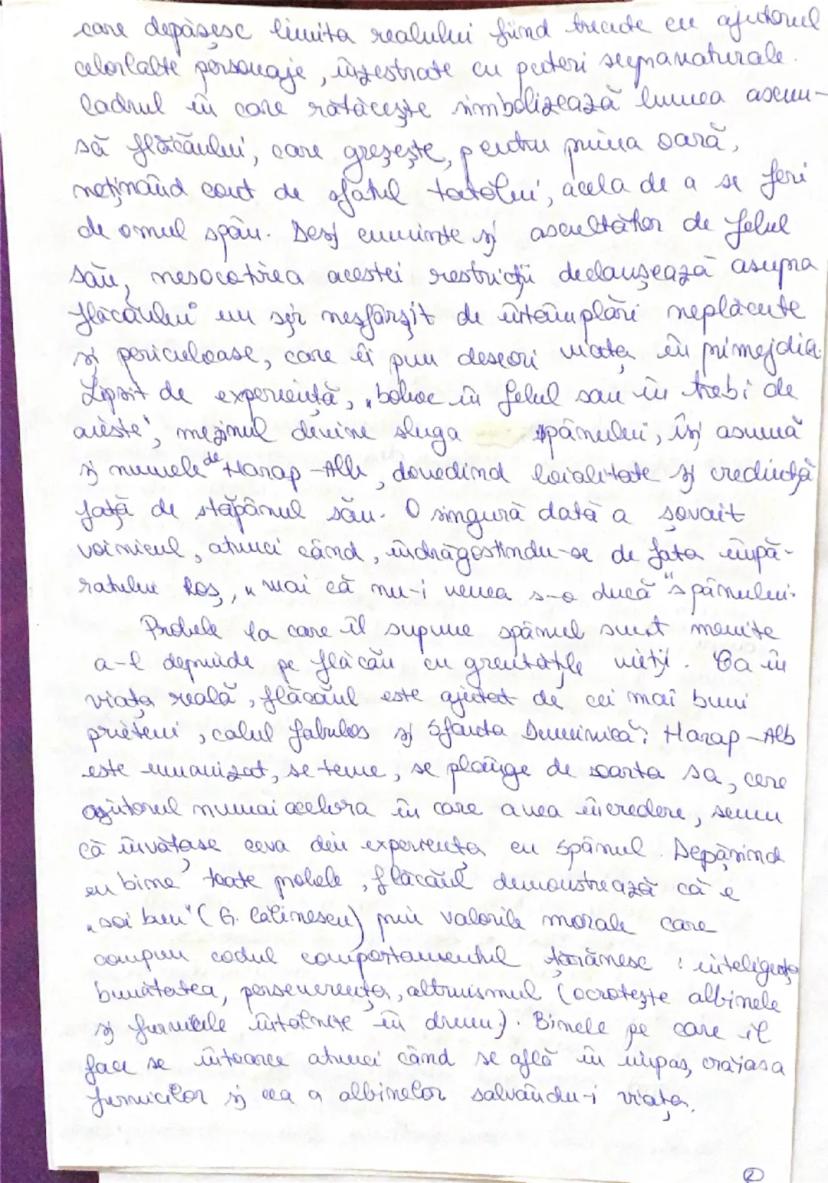 care depășesc limita realului fiind trecute cu ajutorul
celorlalte personaje, înzestrate cu puteri supranaturale.
Cadrul în care rătăcește simbolizează lumea ascun-
să flăcăului, care greșește, pentru prima oară,
neținând cont de sfatul tatălui, acela de a se feri
de omul spân. Deși cuminte și ascultător de felul
său, nesocotirea acestei restricții declanșează asupra
flăcăului un șir nesfârșit de întâmplări neplăcute
și periculoase, care îi pun deseori viața în primejdie.
Lipsit de experiență, „boboc în felul său în trebi de
aieste", mezinul devine sluga spânului, își asumă
și numele de Harap-Alb, dovedind loialitate și credință
față de stăpânul său. O singură dată a șovait
voinicul, atunci când, îndrăgostindu-se de fata împă-
ratului Roș, „mai că nu-i venea s-o ducă" spânului.
Probele la care îl supune spânul sunt menite
a-l deprinde pe flăcău cu greutățile vieții. Ca în
viața reală, flăcăul este ajutat de cei mai buni
prieteni, calul fabulos și Sfânta Duminică. Harap-Alb
este umanizat, se teme, se plânge de soarta sa, cere
ajutorul numai acelora în care avea încredere, semn
că învățase ceva din experiența cu spânul. Depășind
cu bine toate probele, flăcăul demonstrează că e
„soi bun" (G. Călinescu) prin valorile morale care
compun codul comportamentul țărănesc: inteligența
bunătatea, perseverența, altruismul (ocrotește albinele
și furnicile întâlnite în drum). Binele pe care îl
face se întoarce atunci când se află în impas, crăiasa
furnicilor și cea a albinelor salvându-i viața.
2